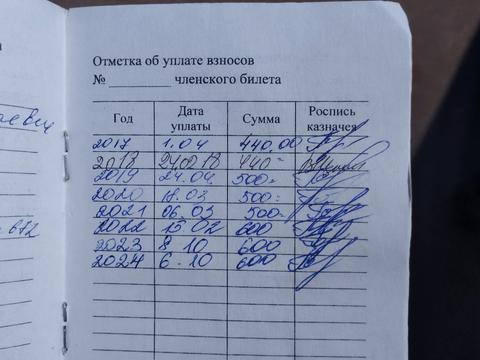 Отметка об уплате взносов
№ членского билета
Год Дата уплаты Сумма Роспись казначея
2017 1.04 440,00
2018 440=
2019 24.04. 500=
2020 18.03 500=
2021 06.03 500=
2022 15.02 600
2023 8.10 600
2024 6.10 600